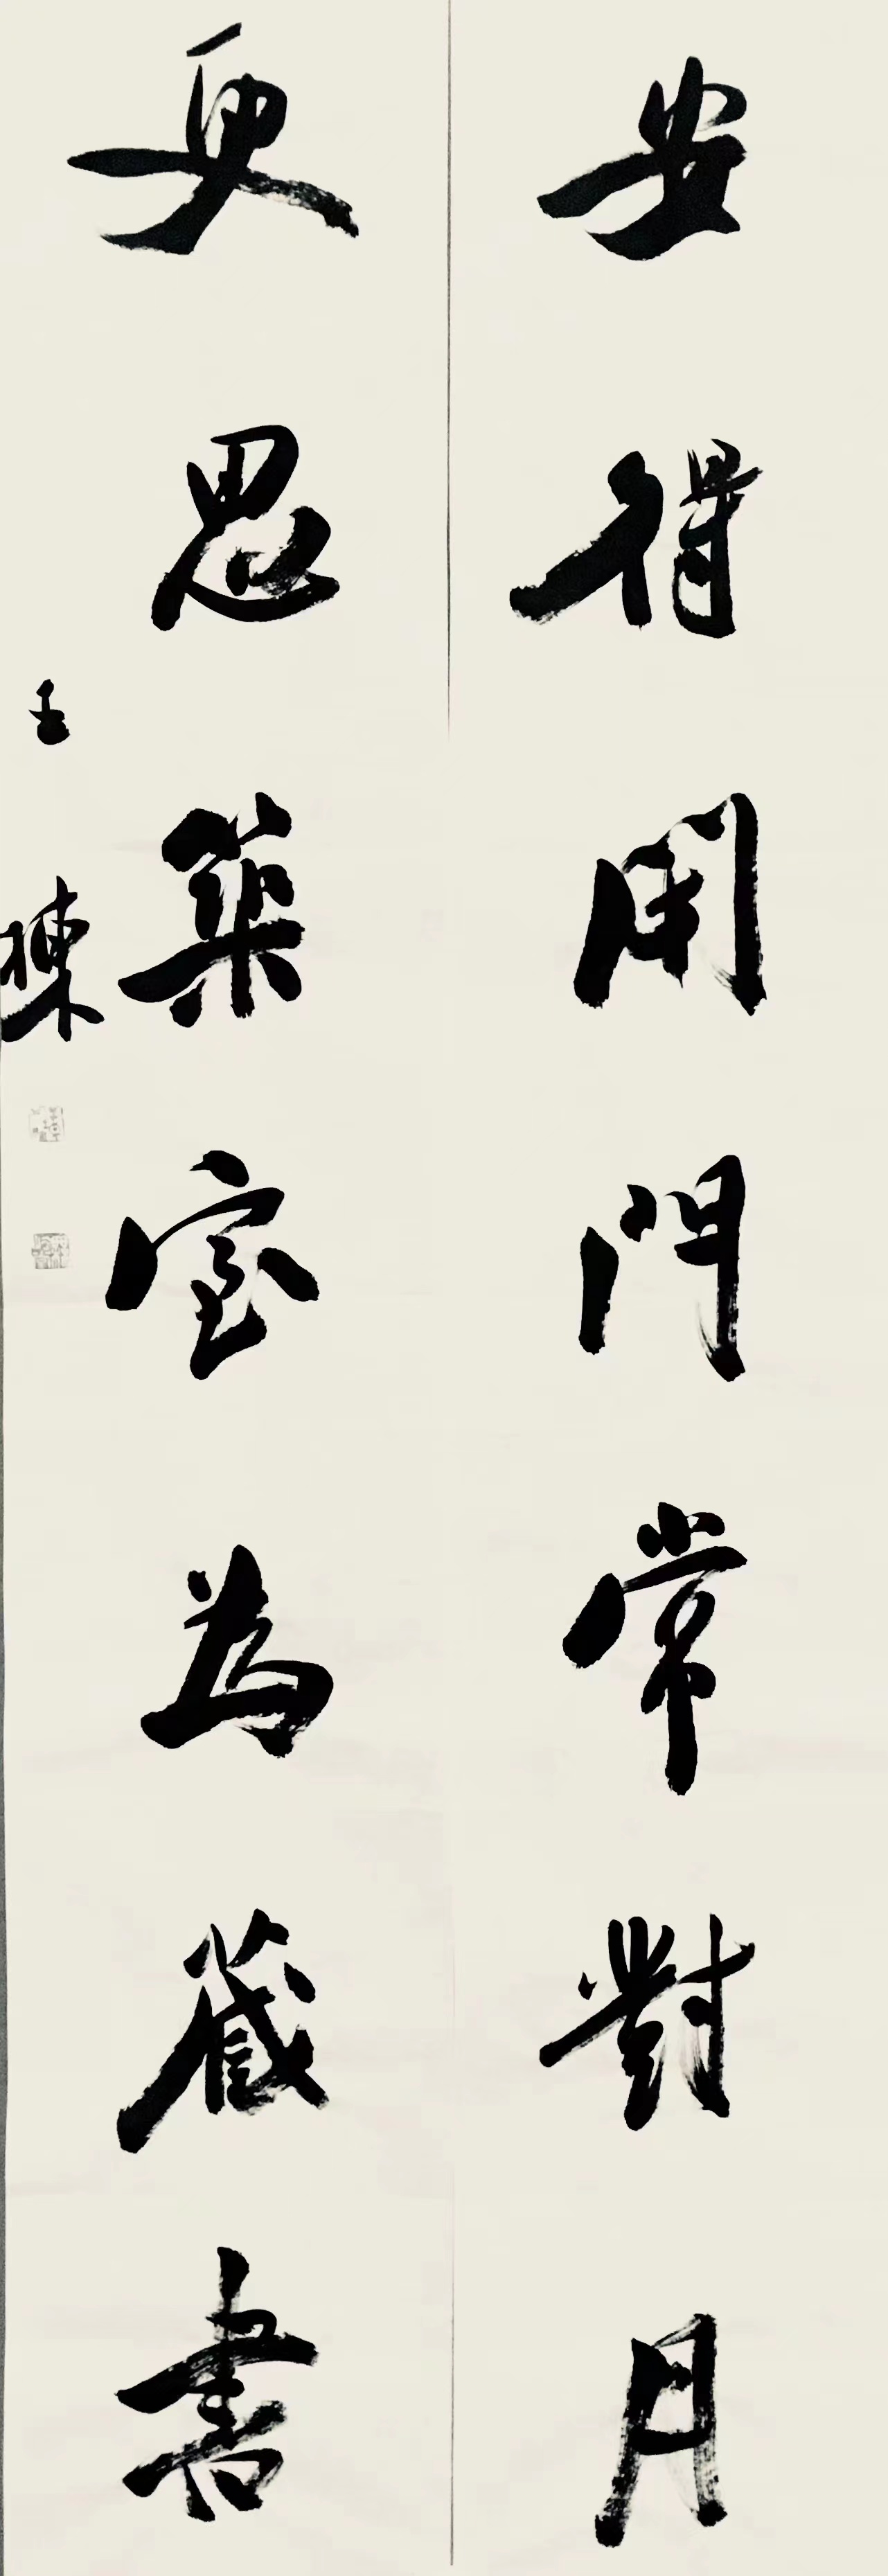 安得閑門常對月
更思築室為藏書
王棟